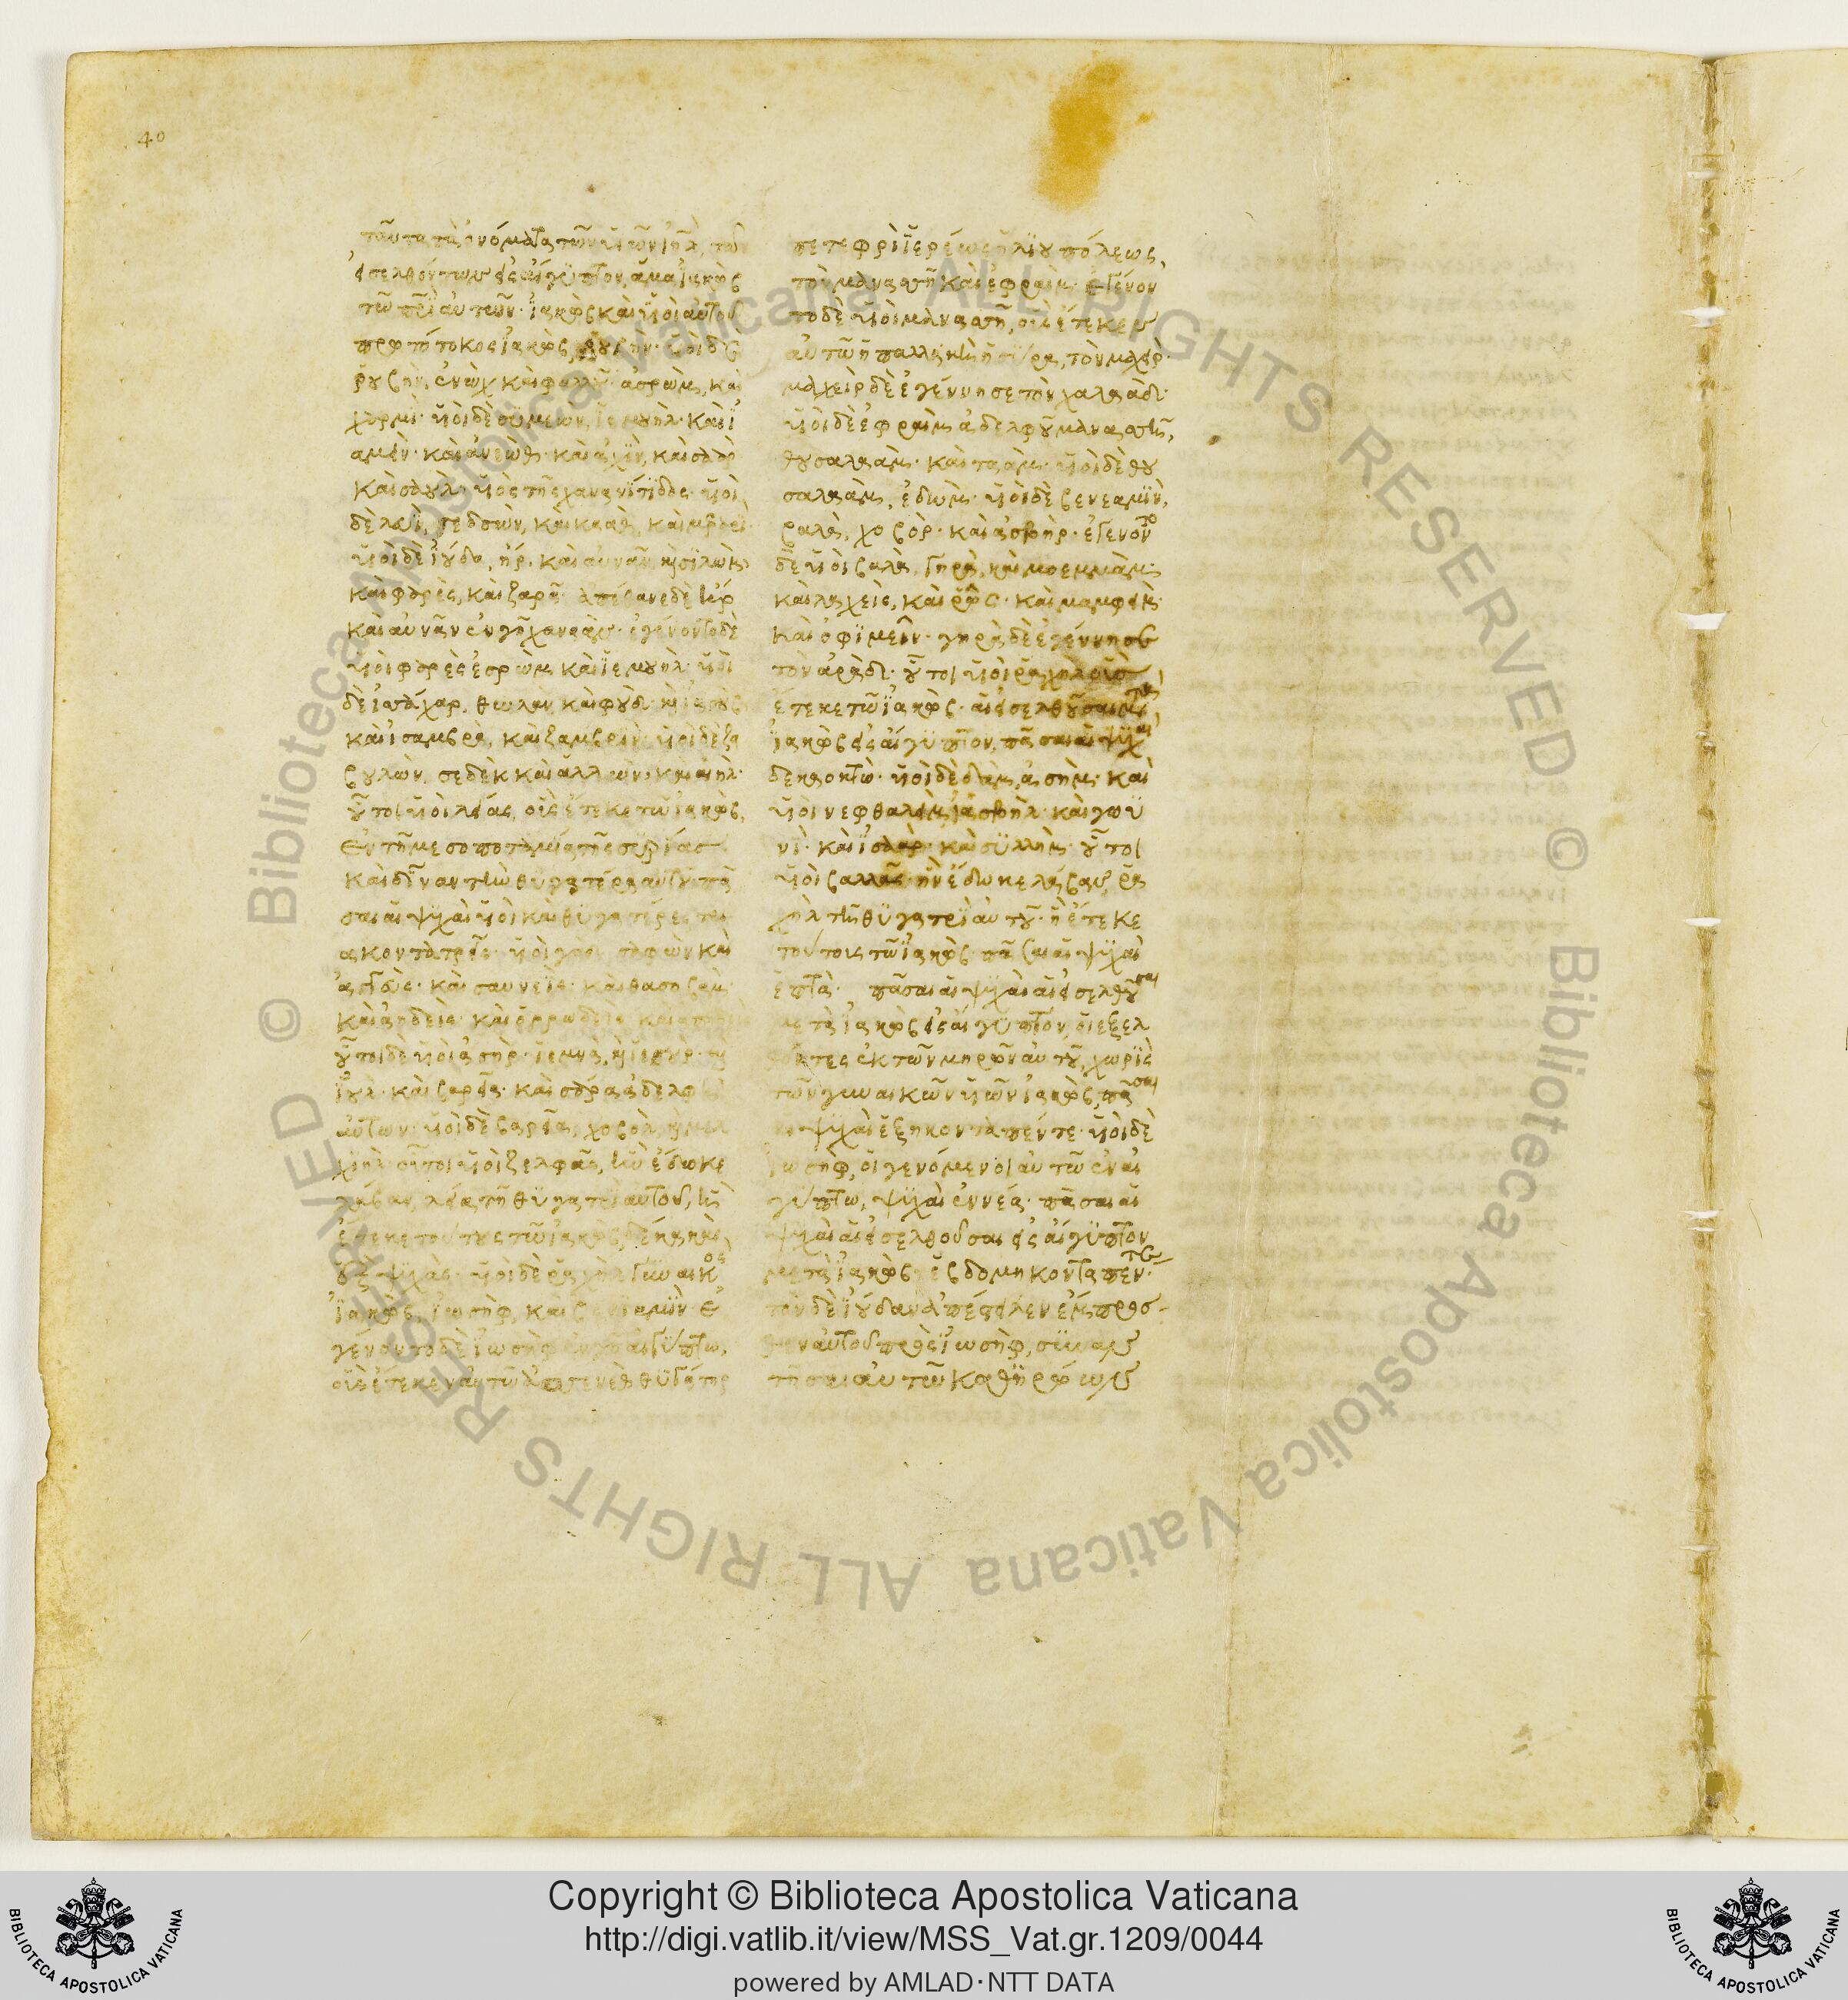 40
ταῦτα τὰ ὀνόματα τῶν υἱῶν ἰηλ, τῶν
εἰσελθόντων εἰς αἴγυπτον, ἅμα ἰακὼβ
τῶ πρὶ αὐτῶν· ἰακὼβ καὶ υἱοὶ αὐτοῦ
πρωτότοκος ἰακὼβ, ῥουβήν· υἱοὶ δὲ
ῥουβὴν, ἐνὼχ καὶ φαλλοὺ· ἀσρὼμ, καὶ
χαρμὶ· υἱοὶ δὲ συμεὼν, ἰεμουὴλ· καὶ ἰ
αμὲν· καὶ ἀνεὼθ· καὶ ἀχὶν, καὶ σαὰρ
καὶ σαουλ· υἱὸς τῆς χανανίτιδος· υἱοὶ
δὲ λευὶ, γεδσὼν, καὶ καὰθ, καὶ μεραρεὶ·
υἱοὶ δὲ ἰούδα, ἤρ, καὶ αὐνᾶν, καὶ σιλὼμ,
καὶ φαρὲς, καὶ ζαρὰ· ἀπέθανε δὲ ἢρ
καὶ αὐνᾶν ἐν γῆ χαναὰν· ἐγένοντο δὲ
υἱοὶ φαρὲς ἐσρὼμ καὶ ἰεμουὴλ· υἱοὶ
καὶ ζαμβρὰν· υἱοὶ δὲ ζα
βουλὼν, σερὲδ καὶ ἀλλὼν,
οὗτοι υἱοὶ λείας, οὓς ἔτεκε τῶ ἰακὼβ,
ἐν τῆ μεσοποταμία τῆς συρίας
καὶ δίναν τὴν θυγατέρα αὐτοῦ· πᾶ
σαι αἱ ψυχαὶ υἱοὶ καὶ θυγατέρες τρι
ακοντατρεῖς· υἱοὶ γὰδ, σαφὼν καὶ
οὗτοι υἱοὶ ζελφᾶς, ἣν ἔδωκε
λάβαν λεία τῆ θυγατρὶ αὐτοῦ, ἣ
ἔτεκε τούτους τῶ ἰακὼβ, δέκα καὶ
ἓξ ψυχάς· υἱοὶ δὲ ῥαχὴλ γυναικὸς
ἰακὼβ, ἰωσὴφ, καὶ βενϊαμὶν· ἐ
γένοντο δὲ ἰωσὴφ ἐν γῆ αἰγύπτω,
οὓς ἔτεκεν αὐτῶ ἀσεννὲθ θυγάτηρ
πετεφρὶ ἱερέως ἡλίου πόλεως,
τὸν μανασσῆ καὶ ἐφραὶμ· ἐγένον
το δὲ υἱοὶ μανασσῆ, οὓς ἔτεκεν
αὐτῶ ἡ παλλακὴ ἡ σύρα, τὸν μαχεὶρ·
μαχεὶρ δὲ ἐγέννησε τὸν γαλαάδ·
υἱοὶ δὲ ἐφραὶμ ἀδελφοῦ μανασσῆ,
θουσαλαὰμ· καὶ ταὰμ· υἱοὶ δὲ θου
σαλαὰμ, ἐδὼμ· υἱοὶ δὲ βενεαμὶν,
βαλὰ, χοβὸρ· καὶ ἀσβήρ· ἐγένοντο
δὲ υἱοὶ βαλὰ, γηρὰ, καὶ νοεμμὰμ·
καὶ ἀγχεὶς, καὶ ῥὼς· καὶ μαμφεὶμ·
καὶ ὀφιμεὶν· γηρὰ δὲ ἐγέννησε
τὸν ἀρὰδ· οὗτοι υἱοὶ ῥαχὴλ οὓς
ἔτεκε τῶ ἰακὼβ·
δεκαοκτώ· υἱοὶ δὲ δὰν, ἀσὴμ· καὶ
υἱοὶ νεφθαλεὶμ, ἀσιὴλ· καὶ γωυ
νὶ· καὶ ἰσσάαρ· καὶ συλλὴμ· οὗτοι
υἱοὶ βαλλᾶς· ἣν ἔδωκε λάβαν ῥα
χὴλ τῆ θυγατρὶ αὐτοῦ· ἣ ἔτεκε
τούτους τῶ ἰακὼβ· πᾶσαι αἱ ψυχαὶ
ἑπτὰ· πᾶσαι αἱ ψυχαὶ αἱ εἰσελθοῦσαι
μετὰ ἰακὼβ εἰς αἴγυπτον, οἱ ἐξελ
θόντες ἐκ τῶν μηρῶν αὐτοῦ, χωρὶς
τῶν γυναικῶν υἱῶν ἰακὼβ, πᾶσαι
αἱ ψυχαὶ ἑξηκονταπέντε· υἱοὶ δὲ
ἰωσὴφ, οἱ γενόμενοι αὐτῶ ἐν αἰ
γύπτω, ψυχαὶ ἐννέα· πᾶσαι αἱ
ψυχαὶ αἱ εἰσελθοῦσαι εἰς αἴγυπτον
μετὰ ἰακὼβ, ἑβδομηκονταπέντε·
τὸν δὲ ἰούδαν ἀπέστειλεν ἔμπροσ
θεν αὐτοῦ πρὸς ἰωσὴφ, συναν
τῆσαι αὐτῶ καθ᾽ ἡρώων
Copyright © Biblioteca Apostolica Vaticana
http://digi.vatlib.it/view/MSS_Vat.gr.1209/0044
powered by AMLAD·NTT DATA
BIBLIOTECA APOSTOLICA VATICANA
BIBLIOTECA APOSTOLICA VATICANA
© Biblioteca Apostolica Vaticana ALL RIGHTS RESERVED
© Biblioteca Apostolica Vaticana ALL RIGHTS RESERVED